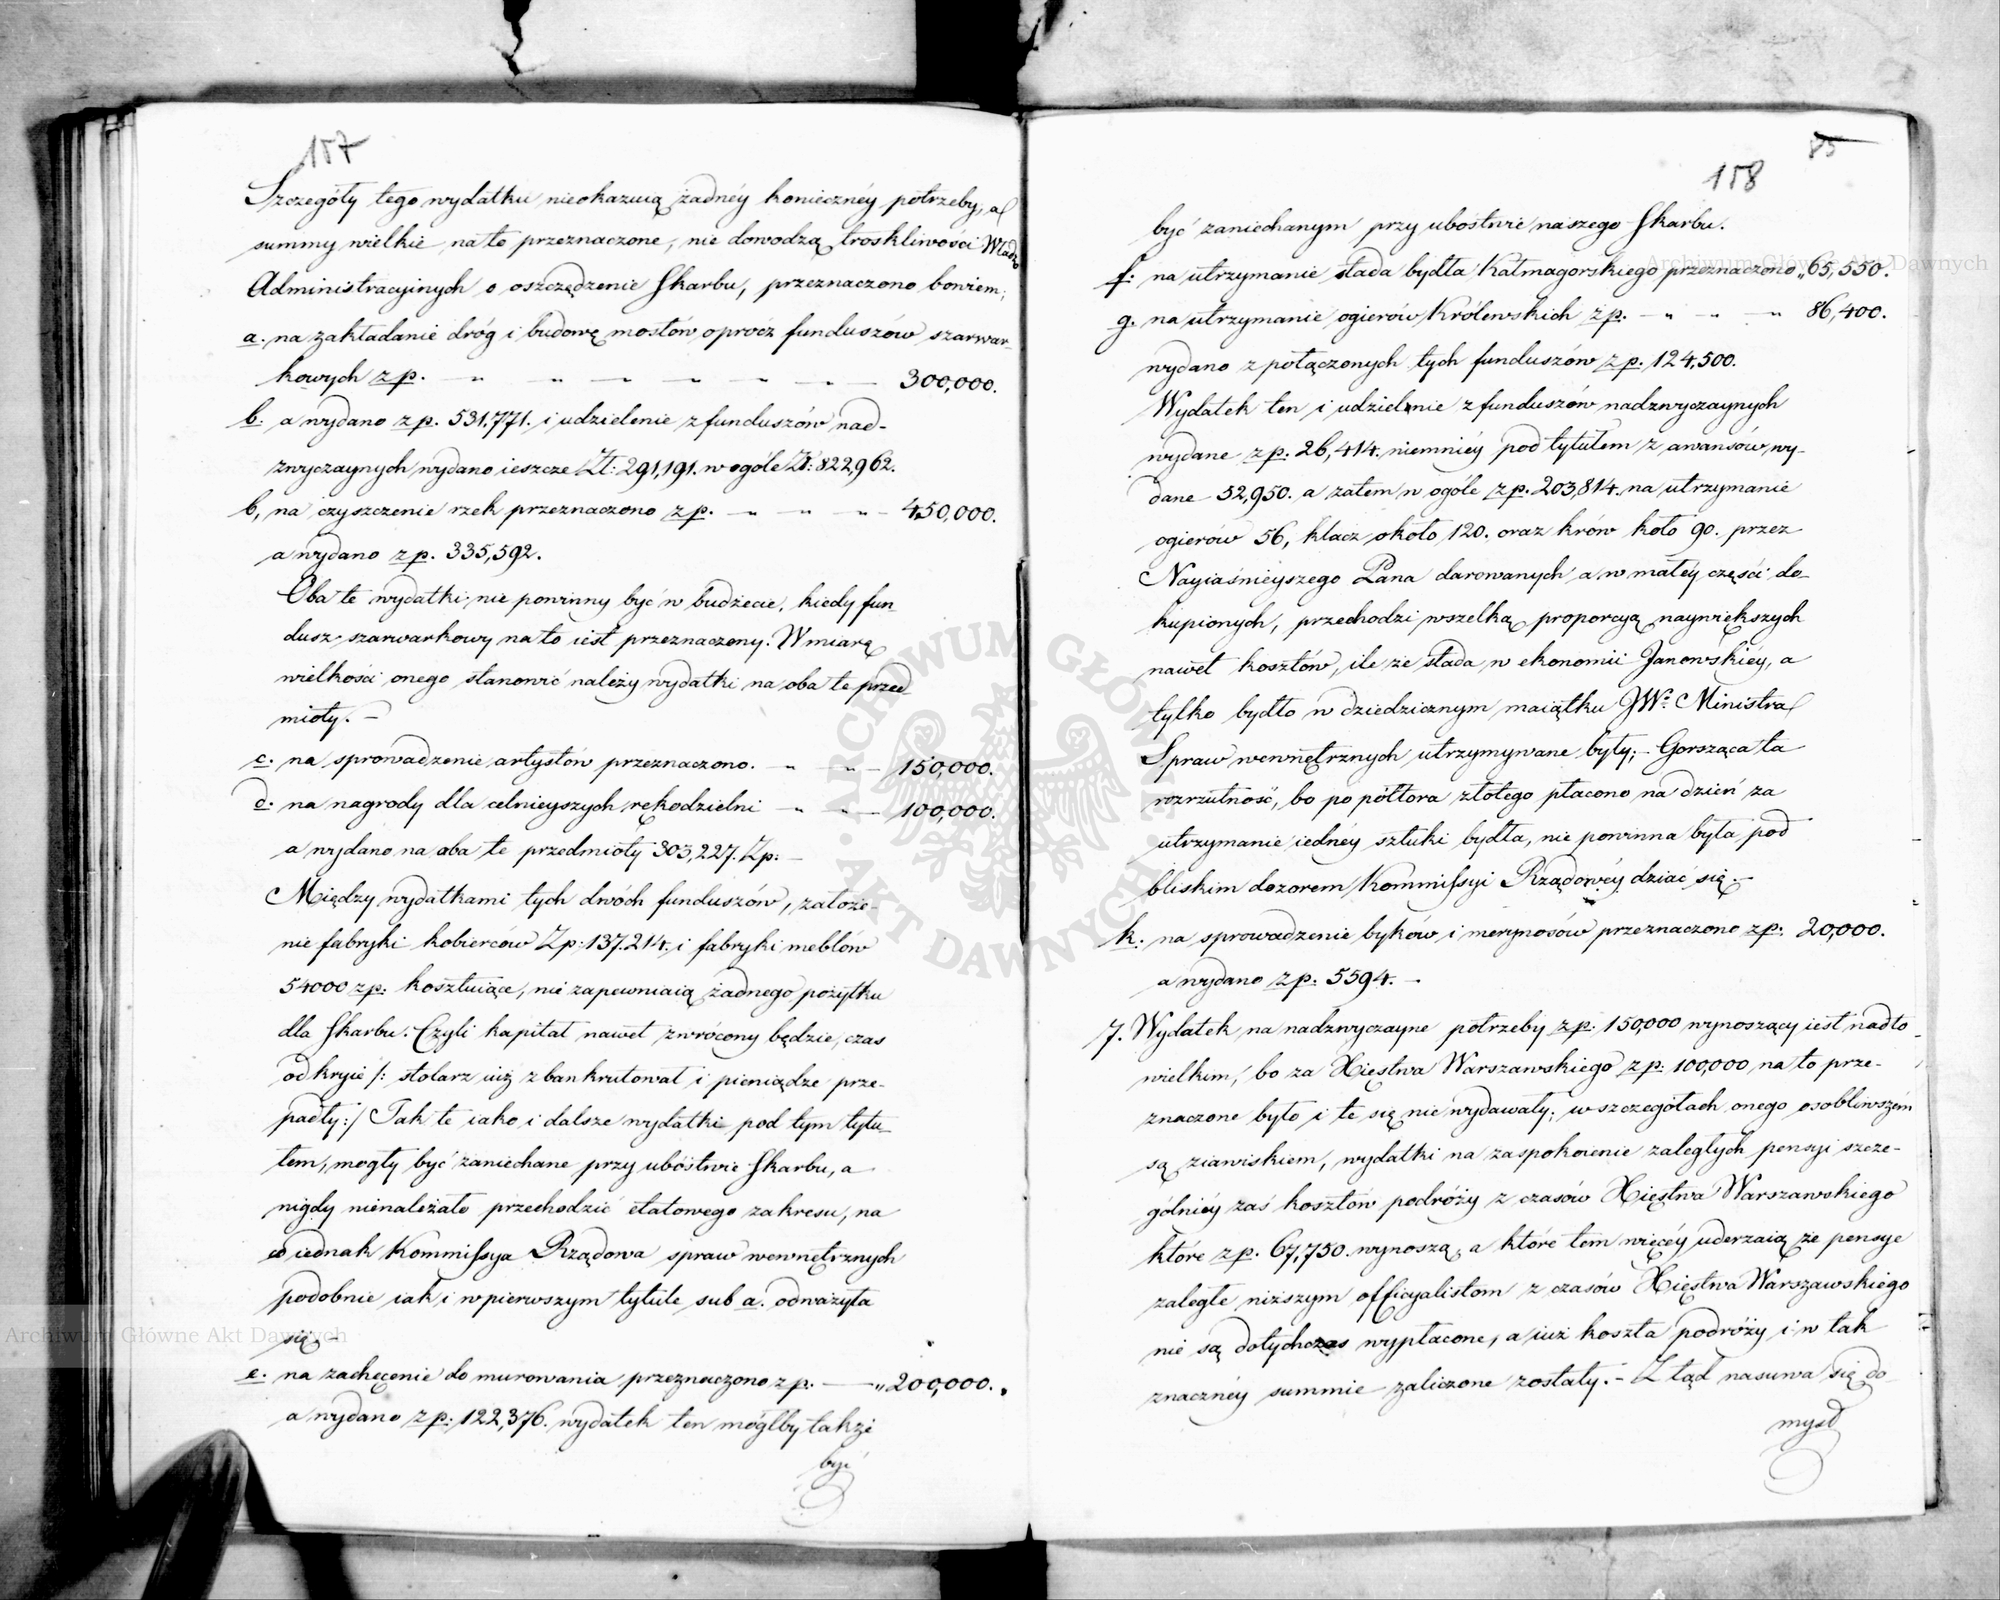 157
Szczegóły tego wydatku nieokazuią żadnéy koniecznéy potrzeby, a
summy wielkie na to przeznaczone, nie dowodzą troskliwości Władz
Administracyinych o oszczędzenie Skarbu, przeznaczono bowiem,
a. na zakładanie dróg i budowę mostów oprócz funduszów szarwar-
kowych zp. — " — " — " — 300,000.
b. a wydano zp. 531,771. i udzielenie z funduszów nad-
zwyczaynych wydano ieszcze Zł: 291,191. w ogóle Zł: 822,962.
b, na czyszczenie rzek przeznaczono zp. — " — " — 450,000.
a wydano zp. 335,592.
Oba te wydatki nie powinny być w budżecie, kiedy fun
dusz szarwarkowy na to iest przeznaczony. W miarę
wielkości onego stanowić należy wydatki na oba te przed
mioty. —
c. na sprowadzenie artystów przeznaczono. " — " — 150,000.
d. na nagrody dla celnieyszych rękodzielni " — " — 100,000.
a wydano na oba te przedmioty 303,227. Zp: —
Między wydatkami tych dwóch funduszów, założe-
nie fabryki kobierców Zp: 137.214. i fabryki meblów
54000 zp: kosztuiące, nie zapewniaią żadnego pożytku
dla Skarbu. Czyli kapitał nawet zwrócony będzie, czas
odkryie /: stolarz iuż zbankrutował i pieniądze prze-
padły :/ Tak te iako i dalsze wydatki pod tym tytu-
łem, mogły być zaniechane przy ubóstwie Skarbu, a
nigdy nienależało przechodzić etatowego zakresu, na
co iednak Kommissya Rządowa spraw wewnętrznych
podobnie iak i w pierwszym tytule sub a. odważyła
się. —
e. na zachęcenie do murowania przeznaczono zp: — " 200,000.
a wydano zp: 122,376. wydatek ten mógłby także
być
85
158
być zaniechanym przy ubóstwie naszego Skarbu.
f. na utrzymanie stada bydła Kałmagorskiego przeznaczono " 65,550.
g. na utrzymanie ogierów Królewskich zp. — " — " — " 86,400.
wydano z połączonych tych funduszów zp. 124,500.
Wydatek ten i udzielenie z funduszów nadzwyczaynych
wydane zp. 26,414. niemniéy pod tytułem z awansów wy-
dane 52,950. a zatem w ogóle zp. 203,814. na utrzymanie
ogierów 56, klacz około 120. oraz krów koło 90. przez
Nayiaśnieyszego Pana darowanych a w małéy części do-
kupionych, przechodzi wszelką proporcyą naywiększych
nawet kosztów, ile że stada w ekonomii Janowskiéy, a
tylko bydło w dziedzicznym maiątku JW. Ministra
Spraw wewnętrznych utrzymywane były; — Gorsząca ta
rozrzutność, bo po półtora złotego płacono na dzień za
utrzymanie iednéy sztuki bydła, nie powinna była pod
bliskim dozorem Kommissyi Rządowéy dziać się. —
h. na sprowadzenie byków i merynosów przeznaczono zp: 20,000.
a wydano zp: 5594. —
7. Wydatek na nadzwyczayne potrzeby zp: 150,000 wynoszący iest nadto
wielkim, bo za Xięstwa Warszawskiego zp: 100,000 na to prze-
znaczone było i te się nie wydawały; w szczegółach onego osobliwszém
są ziawiskiem, wydatki na zaspokoienie zaległych pensyi szcze-
gólniéy zaś kosztów podróży z czasów Xięstwa Warszawskiego
które zp. 67,750. wynoszą, a które tem więcéy uderzaią że pensye
zaległe niższym officyalistom z czasów Xięstwa Warszawskiego
nie są dotychczas wypłacone, a iuż koszta podróży i w tak
znacznéy summie zaliczone zostały. — Ztąd nasuwa się do-
mysł
ARCHIWUM GŁÓWNE AKT DAWNYCH
Archiwum Główne Akt Dawnych
Archiwum Główne Akt Dawnych